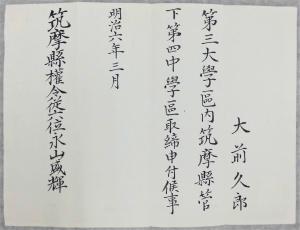 大前久郎
第三大學區内筑摩縣管
下第四中學區取締申付候事
明治六年三月
筑摩縣權令從六位永山盛輝